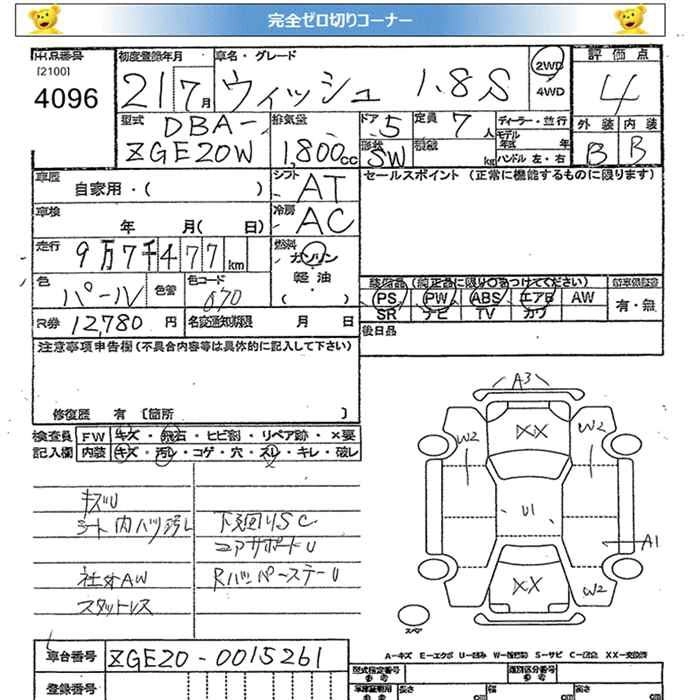 完全ゼロ切りコーナー
出品番号
[2100]
4096
初度登録年月
21 7月
車名・グレード
ウィッシュ 1.8S
2WD
4WD
評価点
4
外装 内装
B B
型式
DBA-
ZGE20W
排気量
1,800cc
ドア 5
形状 SW
定員 7人
積載 kg
ディーラー・並行
モデル年式 年
ハンドル 左・右
車歴
自家用・( )
シフト AT
冷房 AC
車検
年 月( 日)
走行
9万7千477km
燃料
ガソリン
軽油
( )
色
パール
色替
色コード
070
R券 12,780円
名変通知期限 月 日
セールスポイント(正常に機能するものに限ります)
装備品(純正品に限り○をつけてください)
PS PW ABS エアB AW
SR ナビ TV カワ
有・無
後日品
注意事項申告欄(不具合内容等は具体的に記入して下さい)
修復歴 有 [箇所 ]
検査員 FW キズ・飛石・ヒビ割・リペア跡・×要
記入欄 内装 キズ・汚レ・コゲ・穴・スレ・キレ・破レ
キズU
シート内ハツ汚レ
社外AW
スタットレス
下廻りSC
コアサポートU
RバンパーステーU
A3
W2
W2
XX
U1
A1
XX
W2
スペア
A-キズ E-エクボ U-凹み W-補修跡 S-サビ C-腐食 XX-交換済
車台番号 ZGE20-0015261
登録番号
型式指定番号
類別区分番号
長さ cm
幅 cm
高さ cm